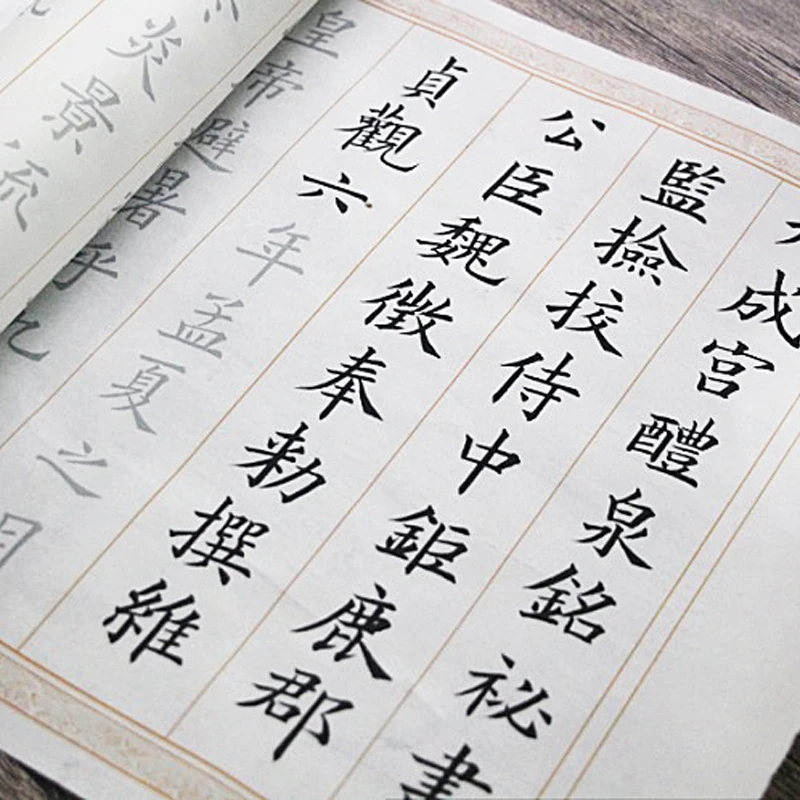 九成宮醴泉銘祕書
監撿挍侍中鉅鹿郡
公臣魏徵奉勑撰維
貞觀六年孟夏之月
皇帝避暑乎九
炎景流